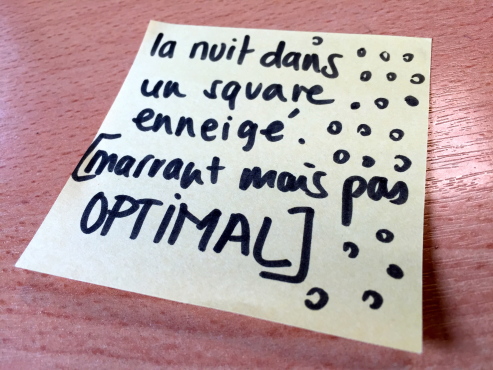 la nuit dans
un square
enneigé.
[marrant mais pas
OPTIMAL]